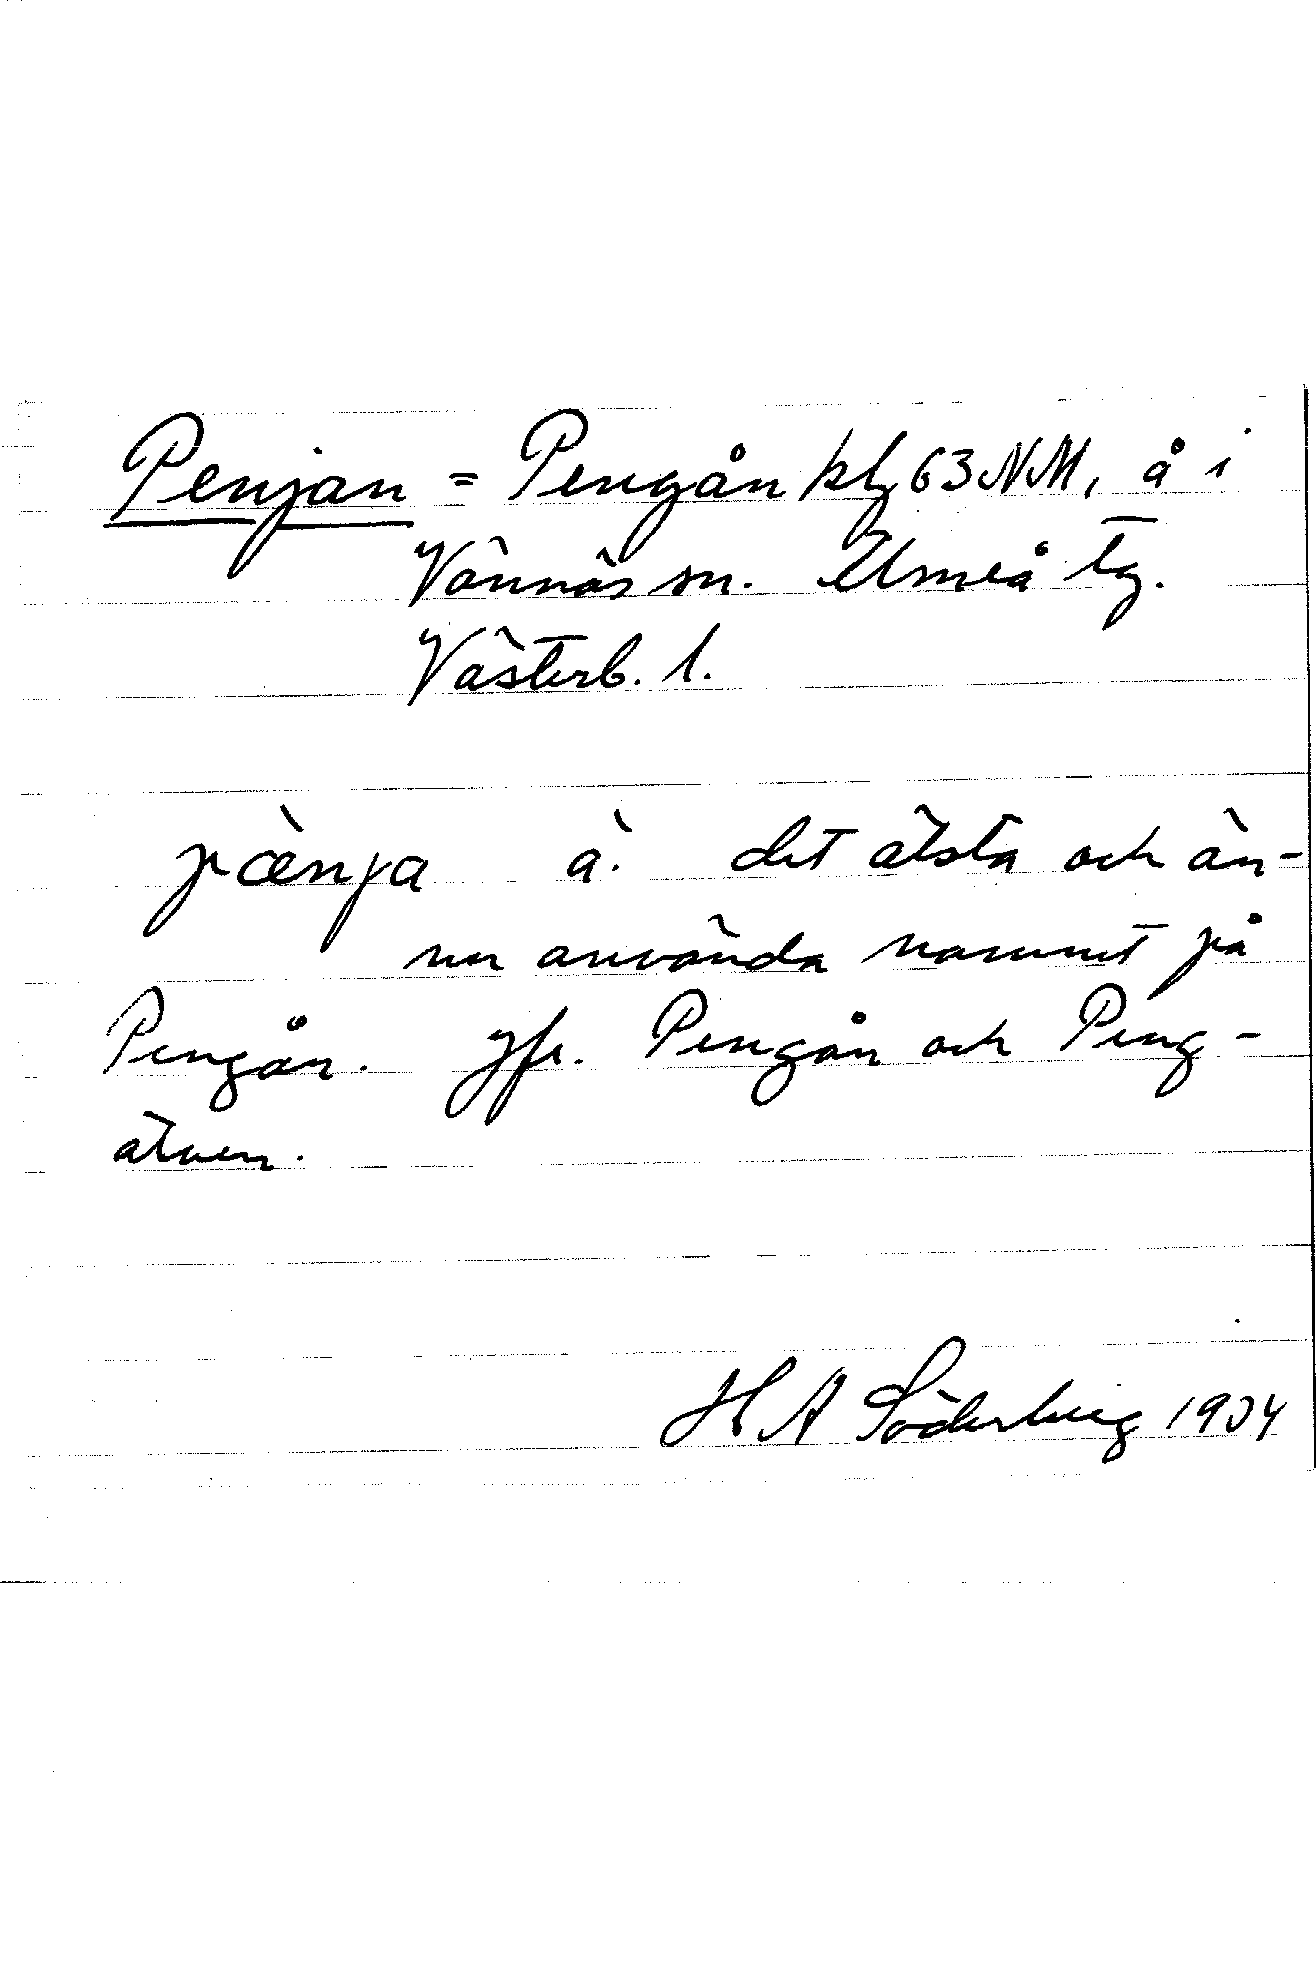 Penjan = Pengån kbl 63 NM, å i
Vännäs sn. Umeå tg.
Västerb. l.
pænja à. det älsta och än-
nu använda namnet på
Pengån. Jfr. Pengån och Peng-
älven.
H A Söderberg 1904